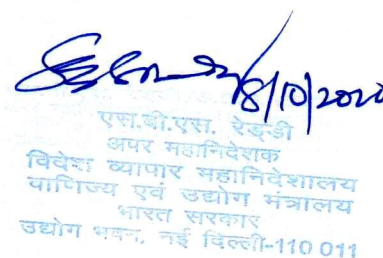 8/10/2020
एस.बी.एस. रेड्डी
अपर महानिदेशक
विदेश व्यापार महानिदेशालय
वाणिज्य एवं उद्योग मंत्रालय
भारत सरकार
उद्योग भवन, नई दिल्ली-110 011